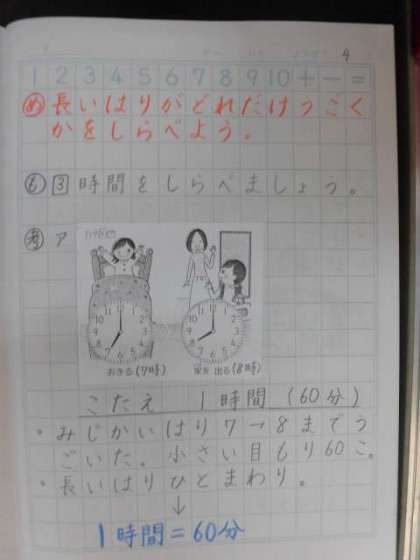 4
1 2 3 4 5 6 7 8 9 10 + − =
め 長いはりがどれだけうごく
かをしらべよう。
も 3 時間をしらべましょう。
考 ア
おきる(7時) 家を出る(8時)
こたえ 1時間(60分)
・みじかいはり7→8までう
ごいた。小さい目もり60こ。
・長いはりひとまわり。
↓
1時間=60分